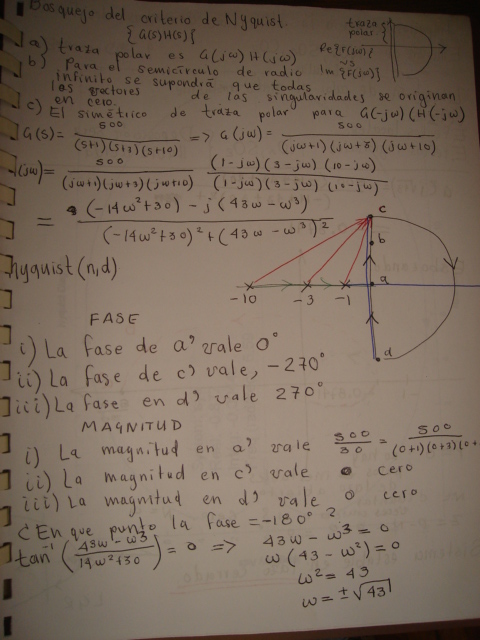 Bosquejo del criterio de Nyquist.
{G(s)H(s)}
traza
polar
Re{F(jω)}
vs
Im{F(jω)}
a) traza polar es G(jω)H(jω)
b) Para el semicírculo de radio
infinito se supondrá que todas
los vectores de las singularidades se originan
en cero.
c) El simétrico de traza polar para G(-jω)(H(-jω)
G(s)= 500 / (s+1)(s+3)(s+10) => G(jω)= 500 / (jω+1)(jω+3)(jω+10)
(jω)= 500 / (jω+1)(jω+3)(jω+10) (1-jω)(3-jω)(10-jω) / (1-jω)(3-jω)(10-jω)
= (-14ω²+30) - j(43ω-ω³) / (-14ω²+30)²+(43ω-ω³)²
nyquist(n,d)
c
b
a
-10 -3 -1
d
FASE
i) La fase de a' vale 0°
ii) La fase de c' vale, -270°
iii) La fase en d' vale 270°
MAGNITUD
i) La magnitud en a' vale 500/30 = 500/(0+1)(0+3)(0+
ii) La magnitud en c' vale cero
iii) La magnitud en d' vale 0 cero
¿En que punto la fase = -180°?
tan⁻¹(43ω-ω³ / 14ω²+30) = 0 => 43ω-ω³=0
ω(43-ω²)=0
ω²=43
ω=±√43